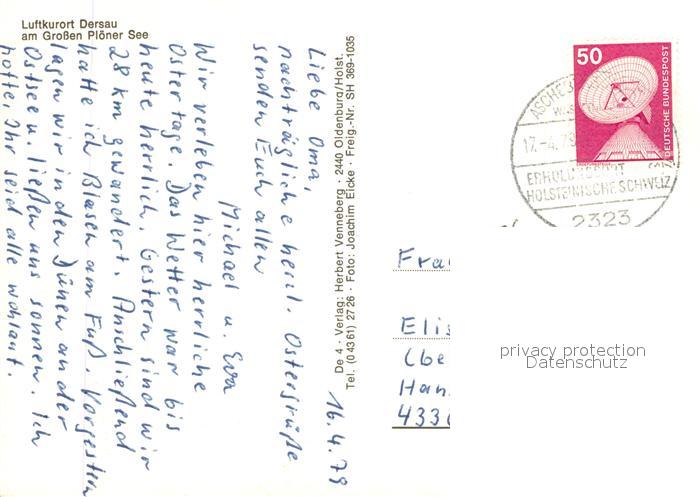 Luftkurort Dersau
am Großen Plöner See
16.4.79
Liebe Oma,
nachträgliche herzl. Ostergrüße
senden Euch allen
Michael u. Eva
Wir verleben hier herrliche
Ostertage. Das Wetter war bis
heute herrlich. Gestern sind wir
28 km gewandert. Anschließend
hatte ich Blasen am Fuß. Vorgestern
lagen wir in den Dünen an der
Ostsee u. ließen uns sonnen. Ich
hoffe, Ihr seid alle wohlauf.
De 4 · Verlag: Herbert Venneberg · 2440 Oldenburg/Holst.
Tel. (0 43 61) 27 26 · Foto: Joachim Eicke · Freig.-Nr. SH 369-1035
50
DEUTSCHE BUNDESPOST
ASCHEB
17.-4.79
ERHOLUNGSORT
HOLSTEINISCHE SCHWEIZ
2323
Fra
Elis
(be
Han
433
privacy protection
Datenschutz